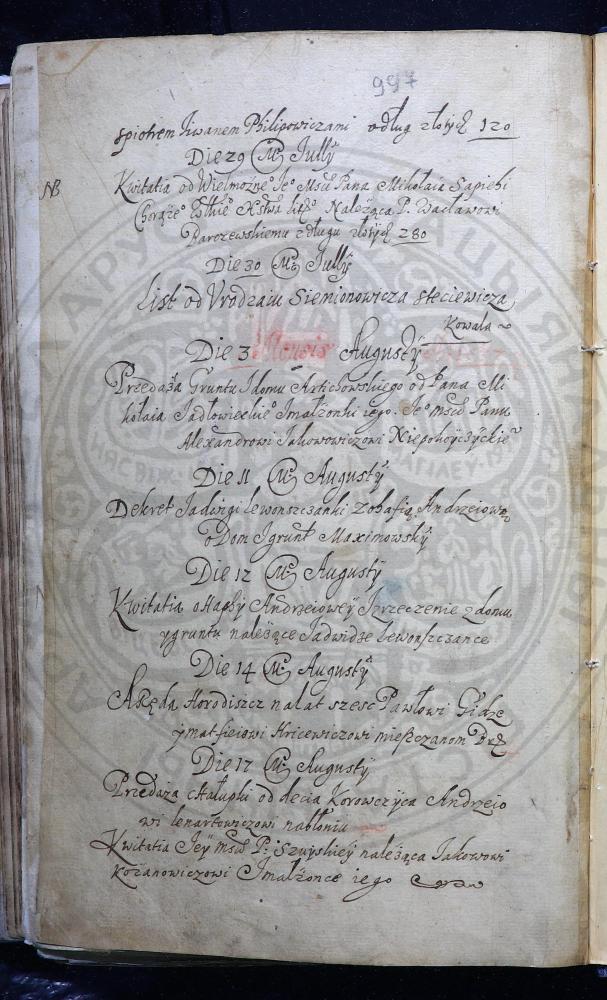 997
spiotrem Iwanem Philipowiczami odług złotych 120
Die 29 Mca Julÿ
NB
Kwitatia od Wielmożne° Je° Mści Pana Mikołaia Sapiehi
Należąca P. Wacławowi
Barczewskiemu z długu złotych 280
Die 30 Mca Julÿ
List od Vrodzaiu Siemionowicza steciewicza
Kowala
Die 3 Mensis Augustÿ
Przedaża Gruntu I domu od Pana Mi
kołaia Imałżonki iego. Je° mści Panu
Alexandrowi Jakowowiczowi
Die 11 Mca Augustÿ
Dekret Jadwigi Lewonszczanki Zohafią Andrzeiową
o Dom I grunt Maximowskÿ
Die 12 Mca Augustÿ
Kwitatia oHapky Andrzeiowey Izrzeczenie z domu
y gruntu należące Jadwidze Lewonszczance
Die 14 Mca Augustÿ
Aręda Horodiszcz na lat szesc Pawłowi
ymatfieiowi Hricewiczowi mieszczanom
Die 17 Mca Augustÿ
Przedaża chałupki od decia Korowczyca Andrzeio
wi lenartowiczowi nabłoniu
Kwitatia Jey mści P. Szuyskiey należąca Jakowowi
Kozanowiczowi Imałżonce iego